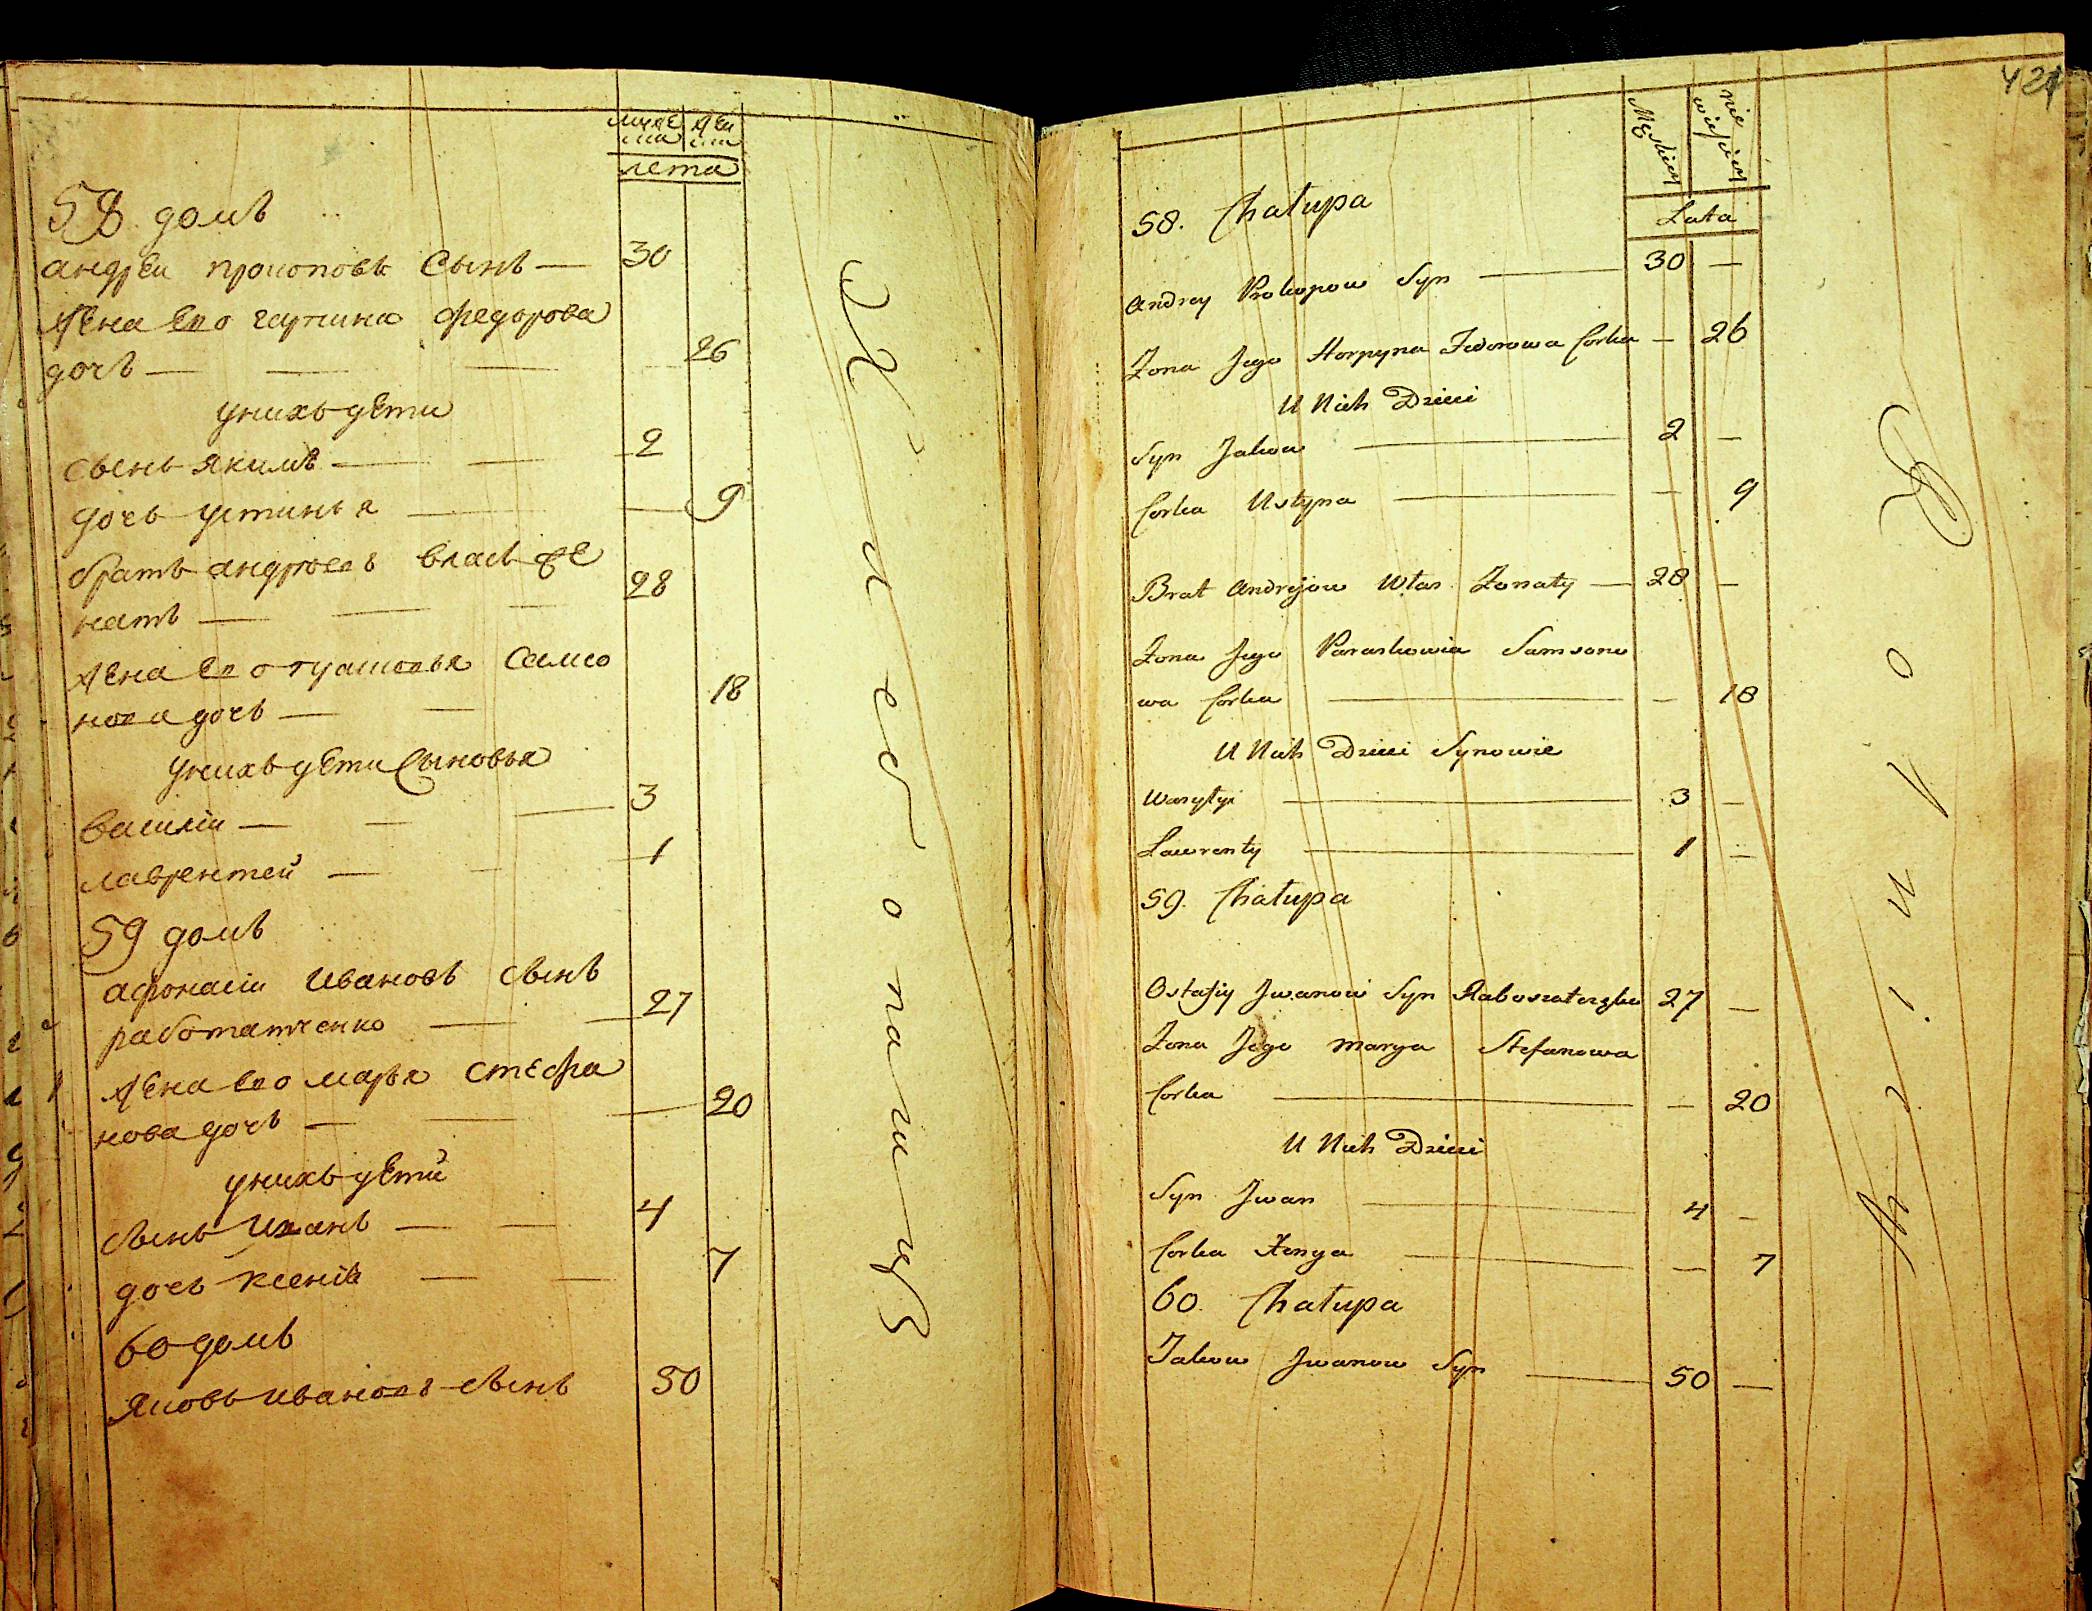 муже ска
жен ска
лета
58 домъ
андреи прокоповъ сынъ — 30
жена ево гарпина федорова
дочь — 26
унихъ дети
сынъ якимъ — 2
дочь устинья — 9
братъ андреевъ власъ же
натъ — 28
жена ево Самсо
нова дочь — 18
унихъ дети Сыновья
василіи — 3
лаврентей — 1
59 домъ
афонасіи ивановъ сынъ
работатченко — 27
жена ево марья стефа
нова дочь — 20
унихъ дети
сынъ иванъ — 4
дочь ксенія — 7
60 домъ
яковъ ивановъ сынъ 50
Хлебопашцъ
421
Męskiey
nie wieściey
Lata
58. Chałupa
Andrey Prokopow Syn — 30 —
Żona Jego Horpyna Fedorowa Corka — 26
U Nich Dzieci
Syn Jakow — 2 —
Corka Ustyna — 9
Brat Andrijow Włas Żonaty — 28 —
Żona Jego Paraskowia Samsono
wa Corka — 18
U Nich Dzieci Synowie
Wasyłyi — 3 —
Ławrenty — 1 —
59. Chałupa
Ostafiy Jwanow Syn 27 —
Żona Jego Marya Stefanowa
Corka — 20
U Nich Dzieci
Syn Jwan — 4 —
Corka Xenya — 7
60. Chałupa
Jakow Jwanow Syn — 50 —
Rolnicy